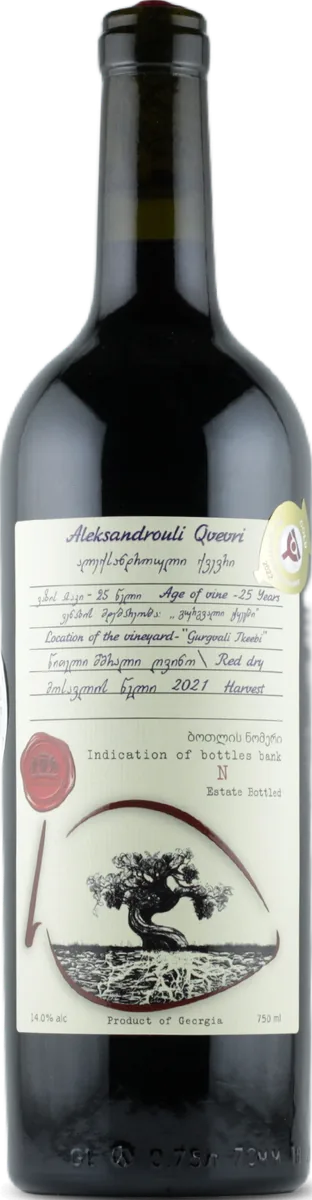 Aleksandrouli Qvevri
ალექსანდროული ქვევრი
ვაზის ასაკი - 25 წელი Age of vine - 25 Years
ვენახის მდებარეობა: ,, გურგვალი ტყეები"
Location of the vineyard-"Gurgvali Tkeebi"
წითელი მშრალი ღვინო \ Red dry
მოსავლის წელი 2021 Harvest
ბოთლის ნომერი
Indication of bottles bank
N
Estate Bottled
14.0% alc Product of Georgia 750 ml
0.75л 70